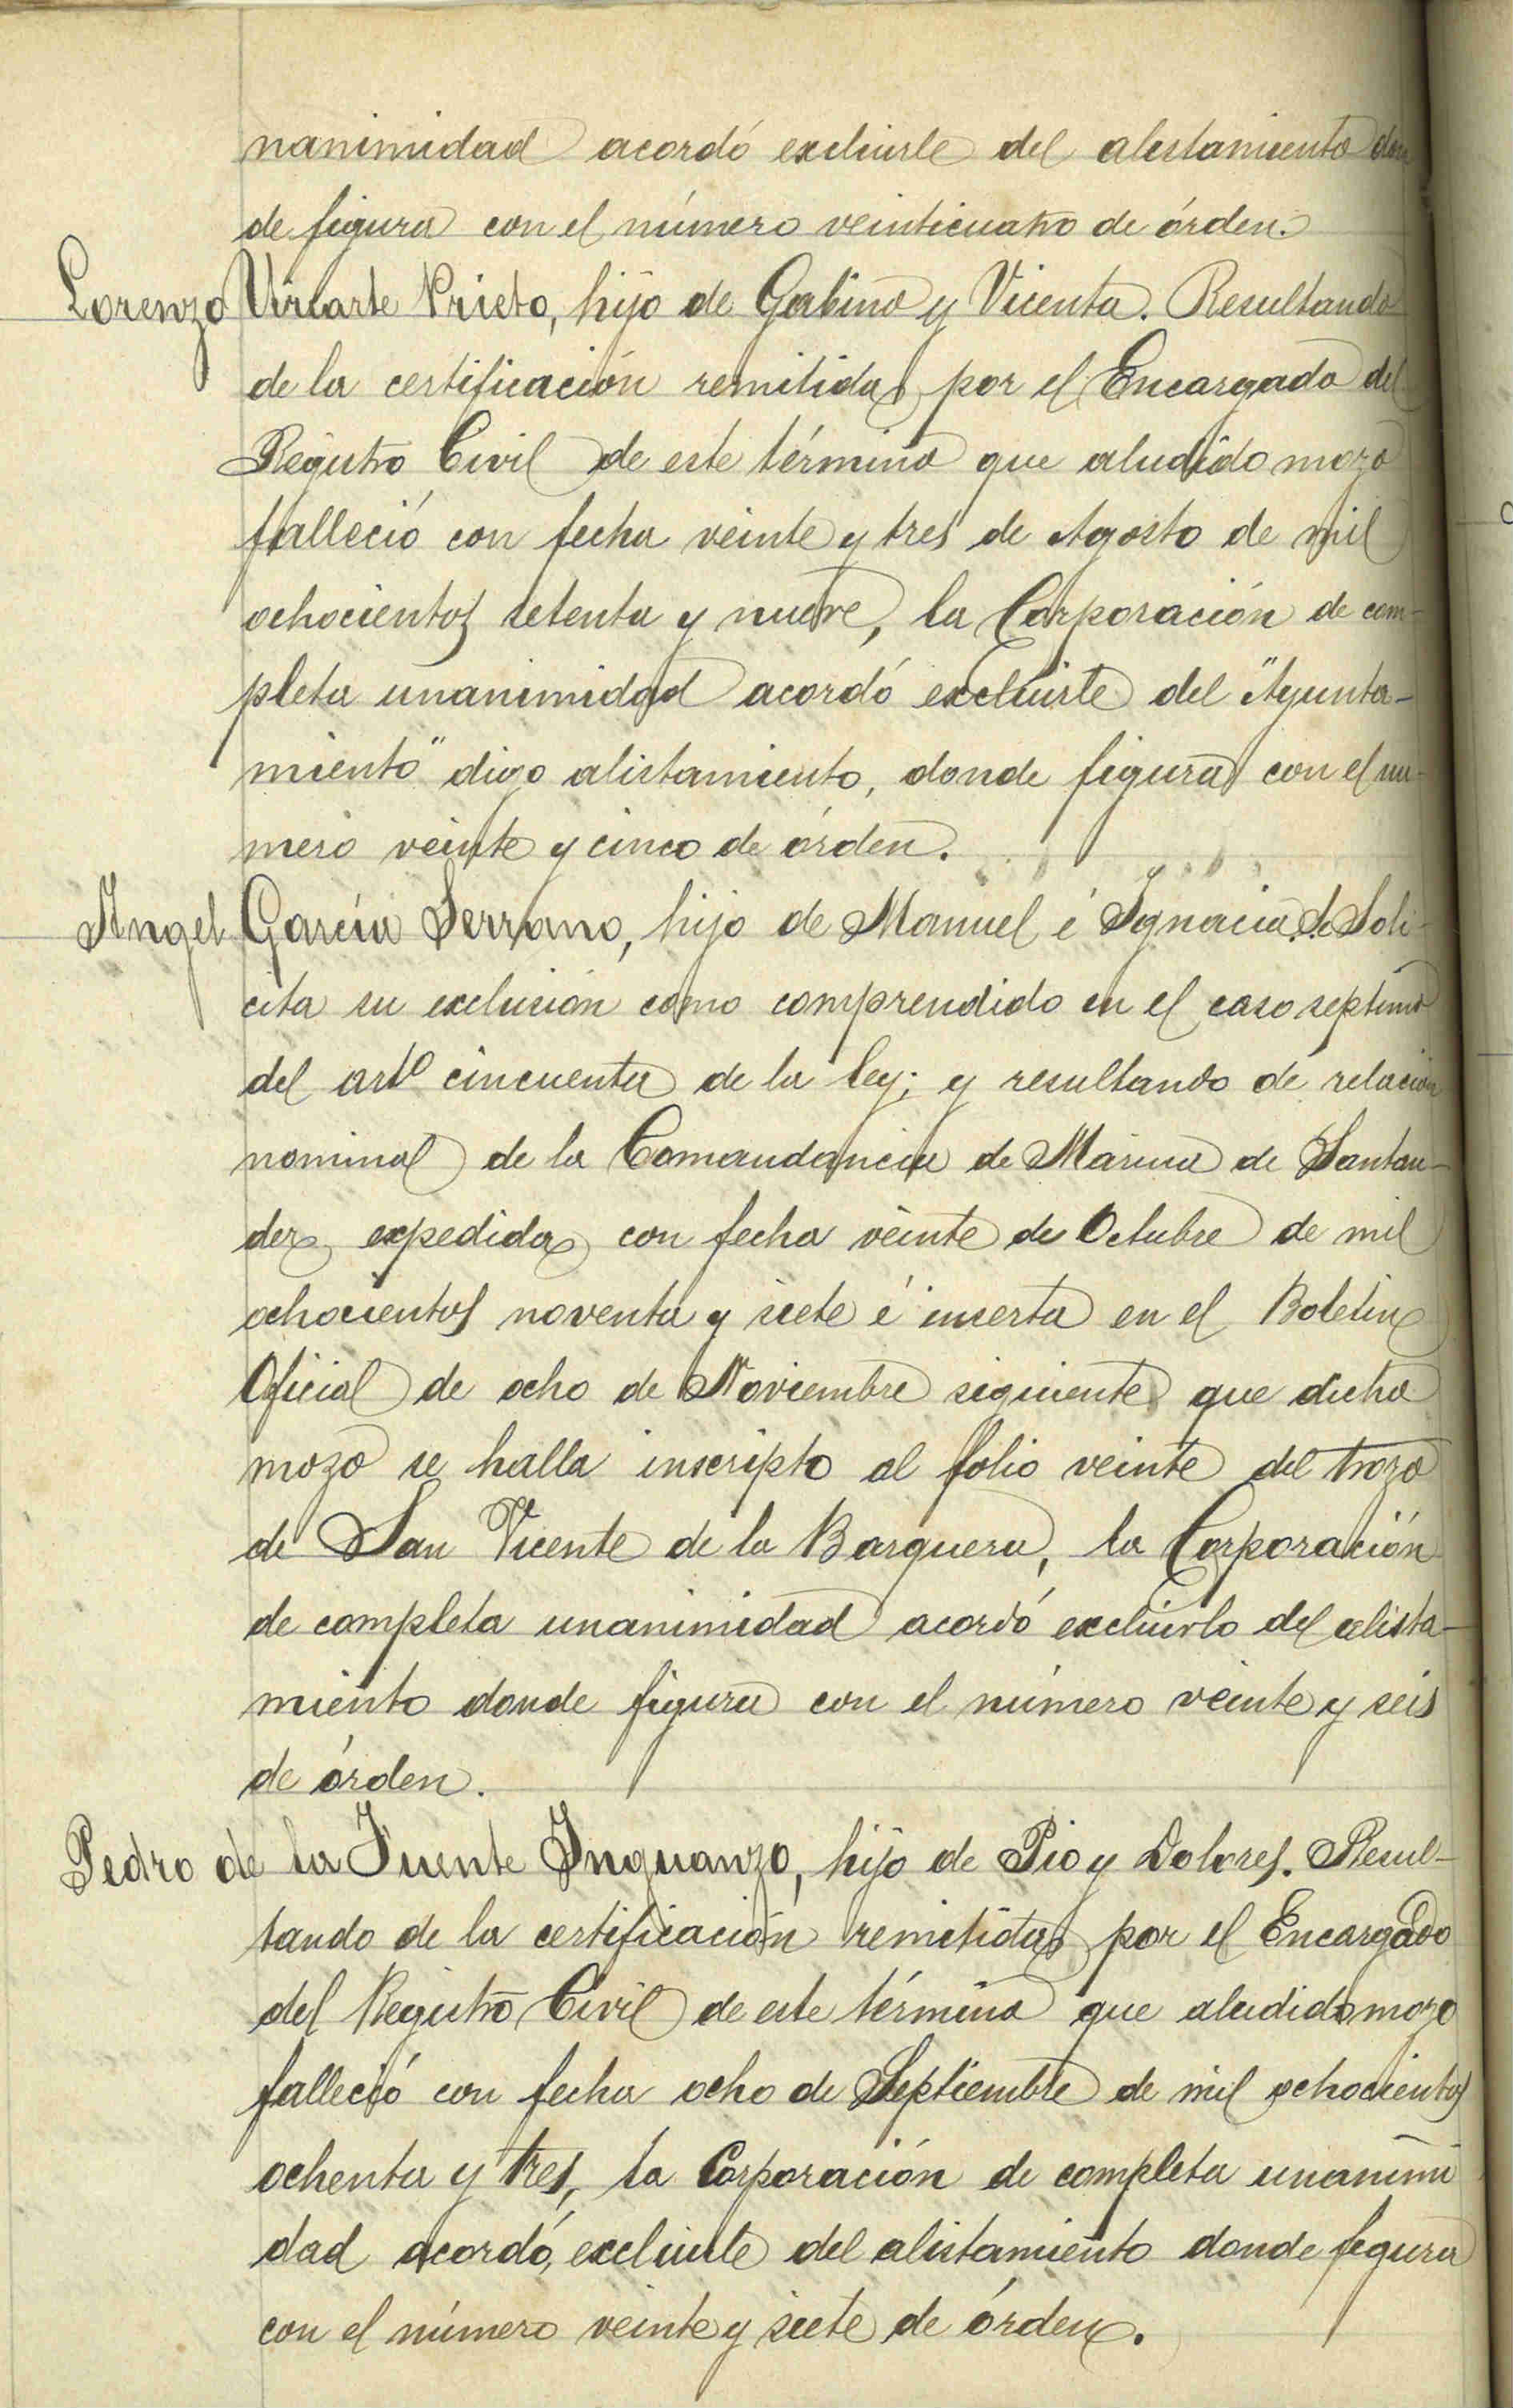 nanimidad acordó excluirle del alistamiento don
de figura con el número veinticuatro de órden.
Lorenzo Uriarte Prieto, hijo de Gabino y Vicenta. Resultando
de la certificación remitida por el Encargado del
Registro Civil de este término que aludido mozo
falleció con fecha veinte y tres de Agosto de mil
ochocientos setenta y nueve, la Corporación de com-
pleta unanimidad acordó excluirle del "Ayunta-
miento" digo alistamiento, donde figura con el nu-
mero veinte y cinco de órden.
Angel García Serrano, hijo de Manuel é Ignacia. Se Soli-
cita su exclusión como comprendido en el caso septimo
del artº cincuenta de la ley; y resultando de relación
nominal de la Comandancia de Marina de Santan-
der, expedida con fecha veinte de Octubre de mil
ochocientos noventa y siete é inserta en el Boletin
Oficial de ocho de Noviembre siguiente que dicho
mozo se halla inscripto al folio veinte del trozo
de San Vicente de la Barquera, la Corporación
de completa unanimidad acordó excluirlo del alista-
miento donde figura con el número veinte y seis
de órden.
Pedro de la Fuente Inguanzo, hijo de Pio y Dolores. Resul-
tando de la certificación remitida por el Encargado
del Registro Civil de este término que aludido mozo
falleció con fecha ocho de Septiembre de mil ochocientos
ochenta y tres, la Corporación de completa unanimi
dad acordó, excluirle del alistamiento donde figura
con el número veinte y siete de órden.